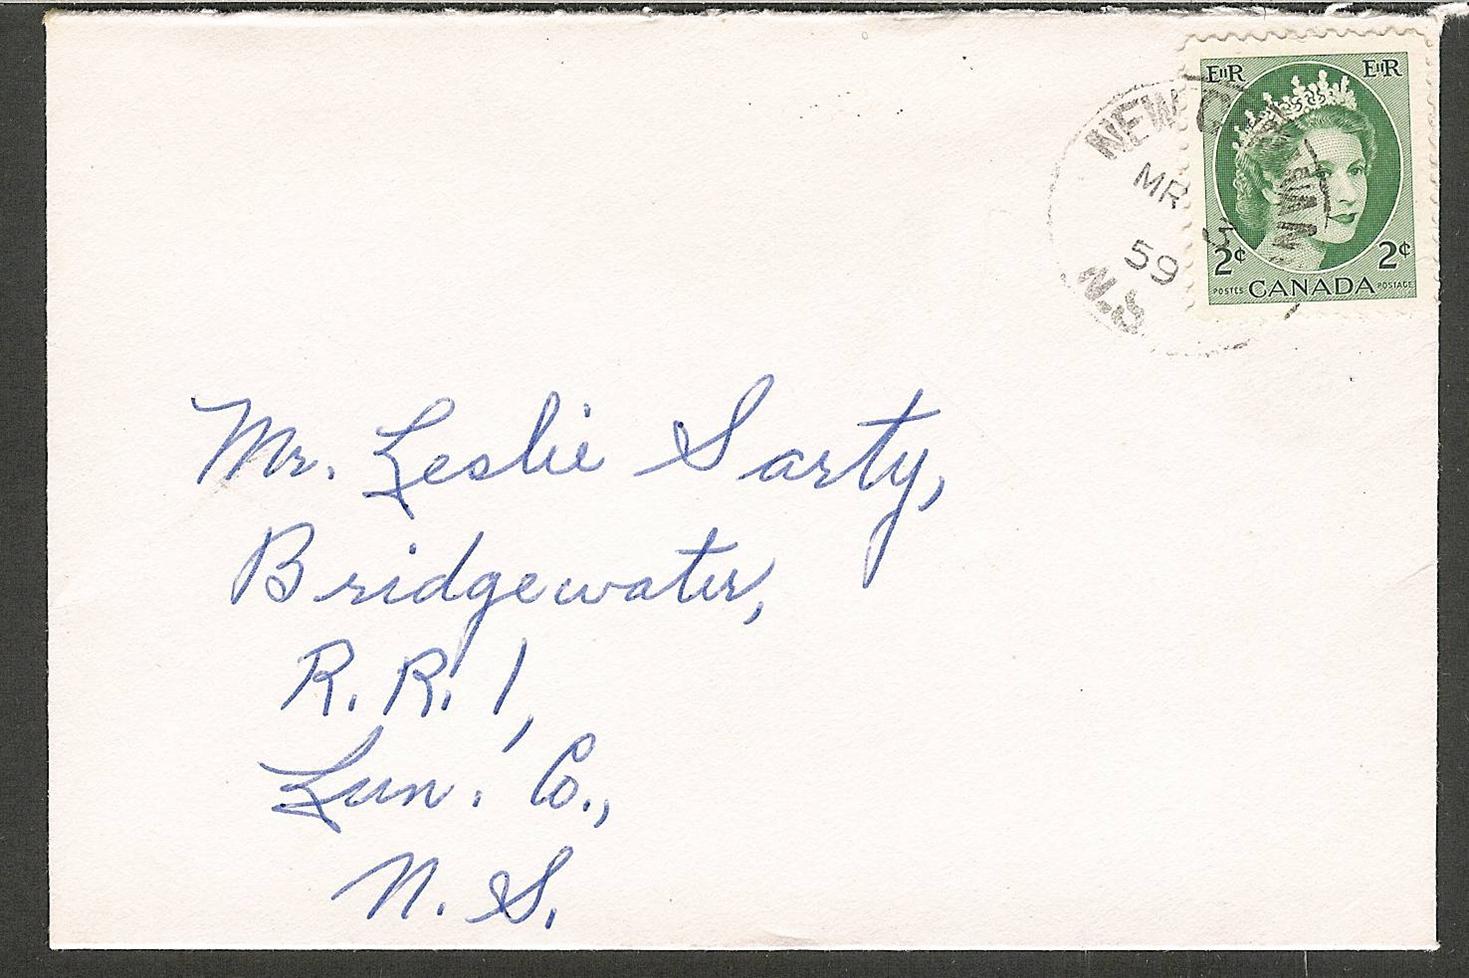 EIIR EIIR
NEW
MR
5
59
N.S
2¢ 2¢
POSTES CANADA POSTAGE
Mr. Leslie Sarty,
Bridgewater,
R. R. 1,
Lun. Co.,
N. S.